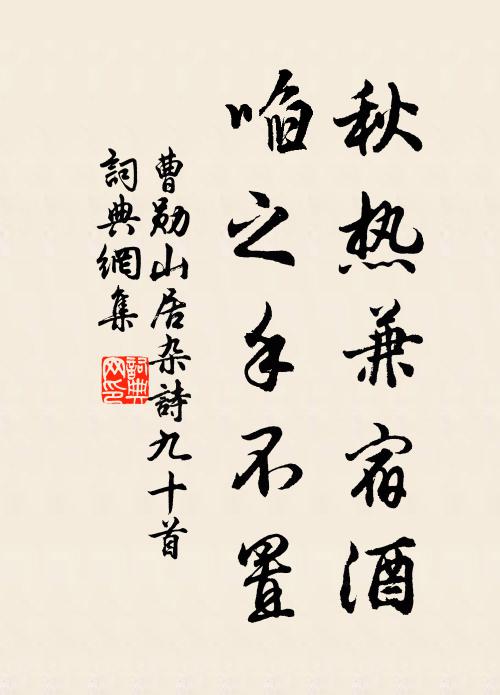 秋热兼宿酒
啗之手不置
曹勋山居杂詩九十首
詞典網集
詞典網印